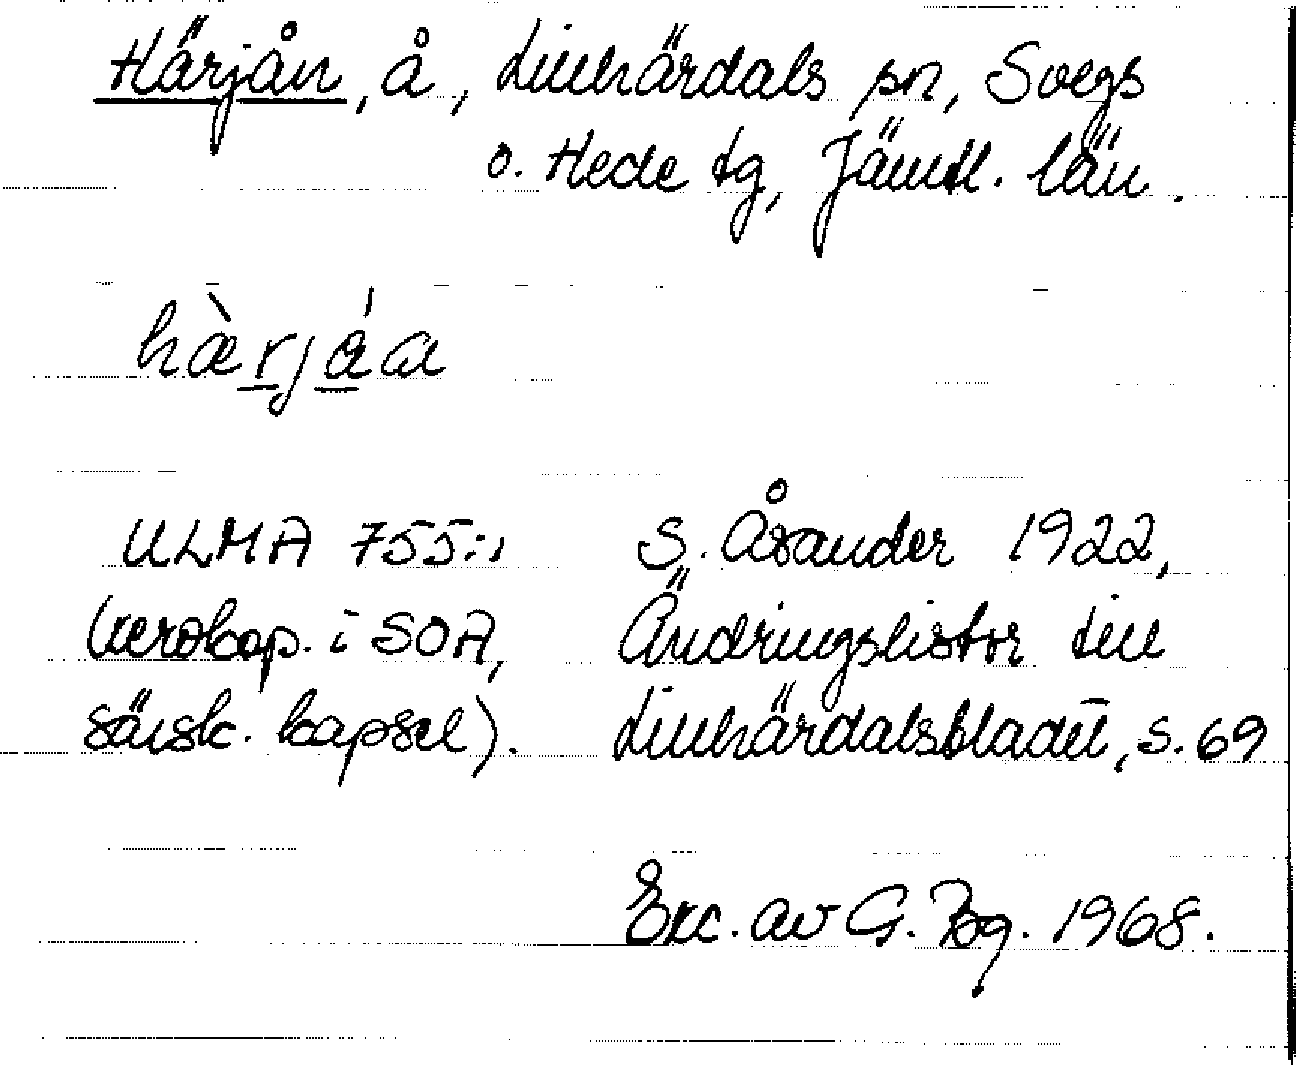 Härjån, å, Lillhärdals sn, Svegs
o. Hede tg, Jämtl. län.
hæ̀rjáa
ULMA 755:1 S. Åsander 1922,
(xeroxkop. i SOA, Ändringslistor till
särsk. kapsel). Lillhärdalsbladet, s. 69
Exc. av G. Bg. 1968.